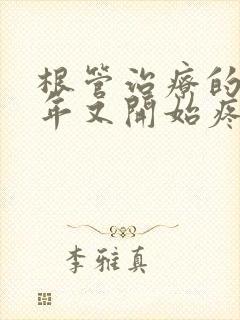 根管治療的
年又開始疼
李雅真